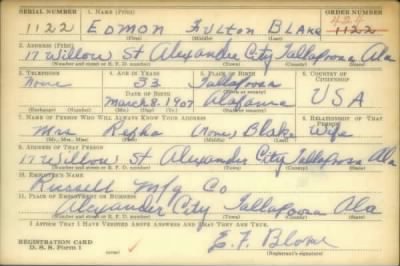 SERIAL NUMBER 1. NAME (Print) ORDER NUMBER
1122 EDMON FULTON BLAKE 1122
(First) (Middle) (Last)
2. ADDRESS (Print)
17 Willow St Alexander City Tallapoosa Ala
(Number and street or R. F. D. number) (Town) (County) (State)
3. TELEPHONE 4. AGE IN YEARS 5. PLACE OF BIRTH 6. COUNTRY OF CITIZENSHIP
None 33 Tallapoosa
DATE OF BIRTH (Town or county)
March 8. 1907 Alabama USA
(Exchange) (Number) (Mo.) (Day) (Yr.) (State or country)
7. NAME OF PERSON WHO WILL ALWAYS KNOW YOUR ADDRESS 8. RELATIONSHIP OF THAT PERSON
Mrs Blake Wife
(Mr., Mrs., Miss) (First) (Middle) (Last)
9. ADDRESS OF THAT PERSON
17 Willow St Alexander City Tallapoosa Ala
(Number and street or R. F. D. number) (Town) (County) (State)
10. EMPLOYER'S NAME
Russell Mfg Co
11. PLACE OF EMPLOYMENT OR BUSINESS
Alexander City Tallapoosa Ala
(Number and street or R. F. D. number) (Town) (County) (State)
I AFFIRM THAT I HAVE VERIFIED ABOVE ANSWERS AND THAT THEY ARE TRUE.
REGISTRATION CARD
D. S. S. Form 1 (over) E. F. Blake
(Registrant's signature)